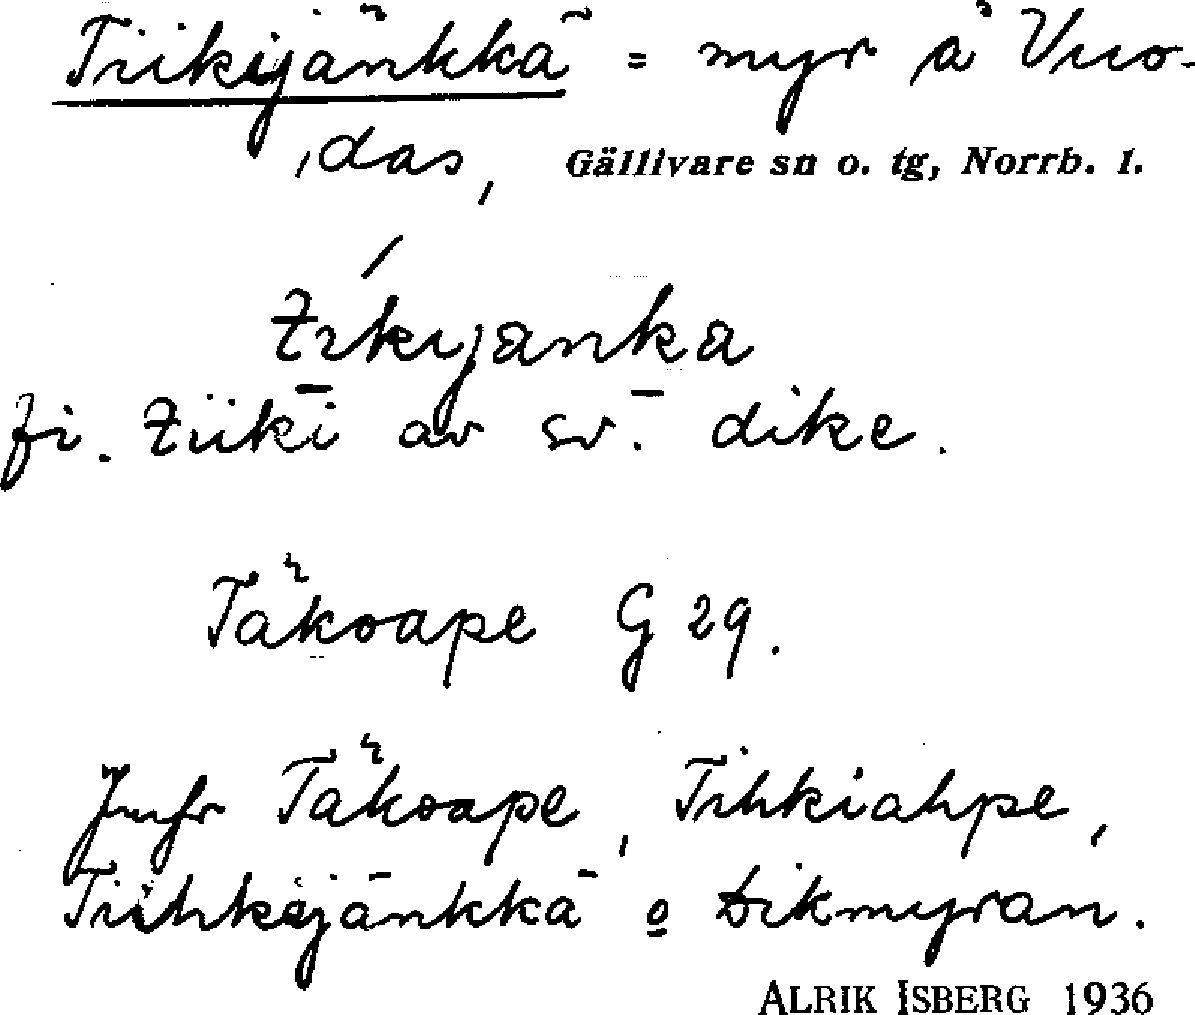 Tiikijänkkä = myr å Vuo-
das, Gällivare sn o. tg, Norrb. l.
tikijänkä
fi. tiiki av sv. dike.
Täkoape G 29.
Jmfr Täkoape, Tihkiahpe,
Tiihkijänkkä o Dikmyran.
ALRIK ISBERG 1936